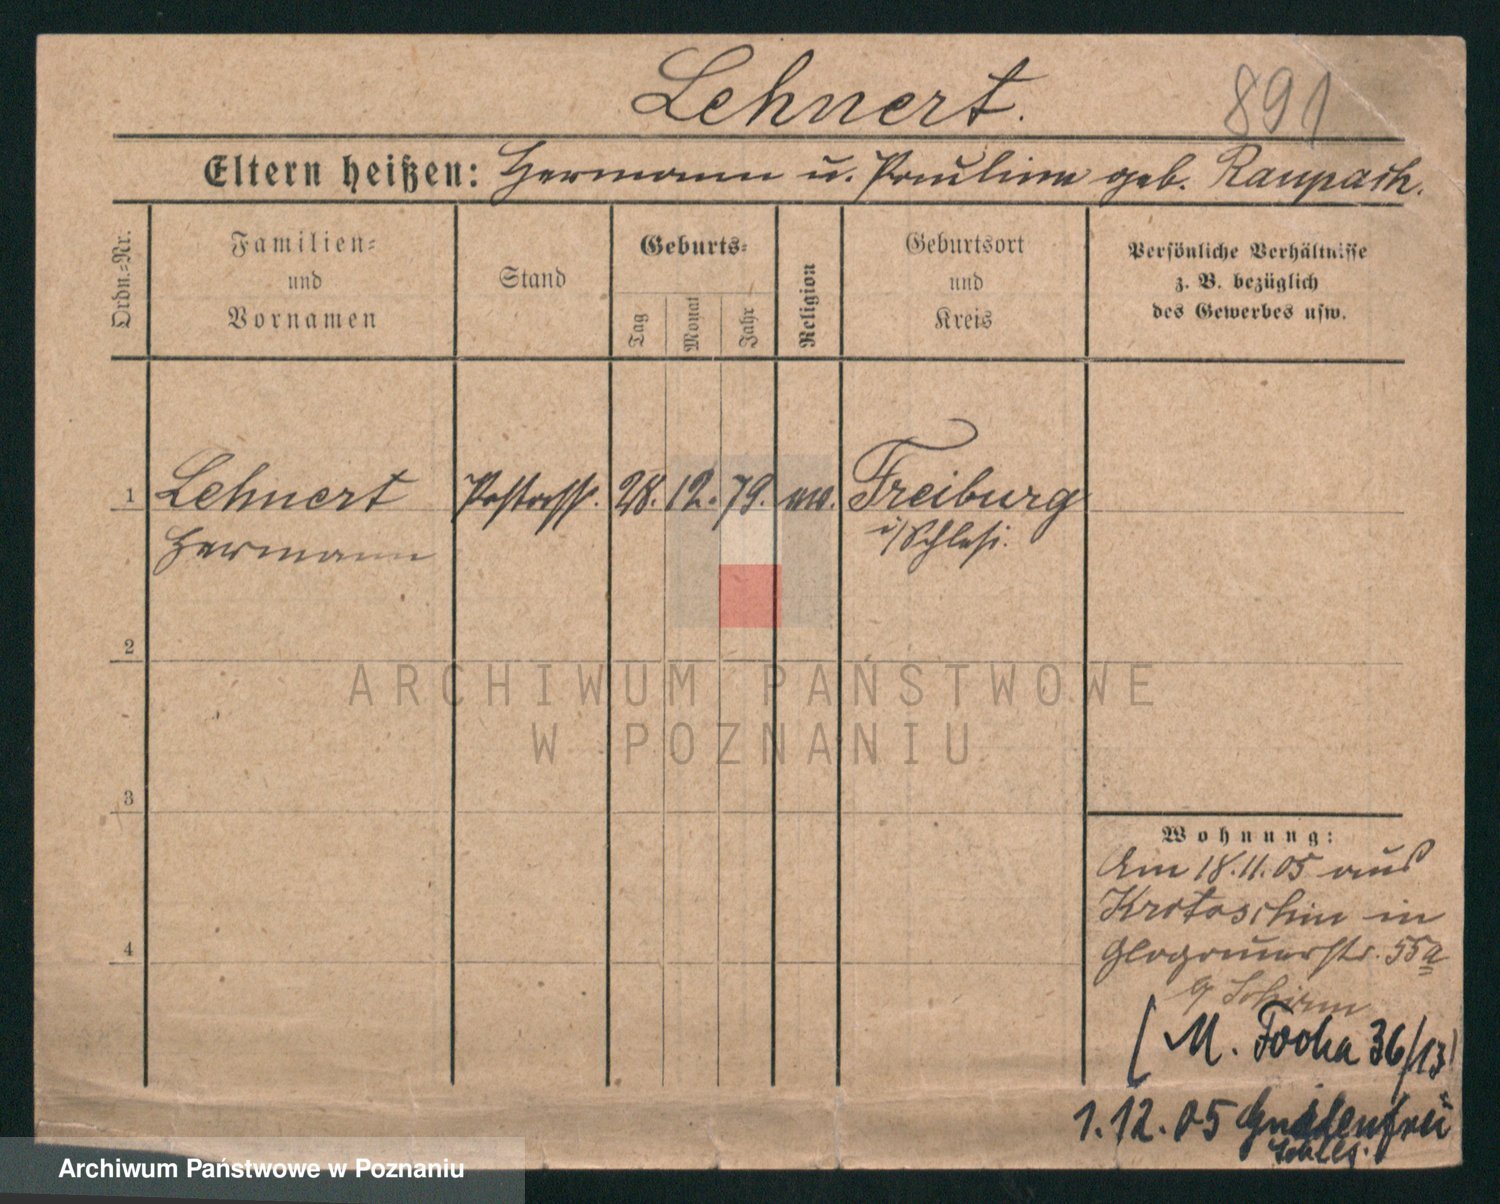 Lehnert.
891
Eltern heißen: Hermann u. Pauline geb. Raupach.
Ordn.-Nr.
Familien-
und
Vornamen
Stand
Geburts-
Tag
Monat
Jahr
Religion
Geburtsort
und
Kreis
Persönliche Verhältnisse
z. B. bezüglich
des Gewerbes usw.
1 Lehnert Postassst. 28. 12. 79. ev. Freiburg
Hermann i/Schlesi.
2
3
4
Wohnung:
Am 18.11.05 aus
Krotoschin in
Glogauerstr. 55a
b/ Schirm
( M. Focha 36/13)
1.12.05 Gnadenfrei
Schles.
ARCHIWUM PAŃSTWOWE
W POZNANIU
Archiwum Państwowe w Poznaniu